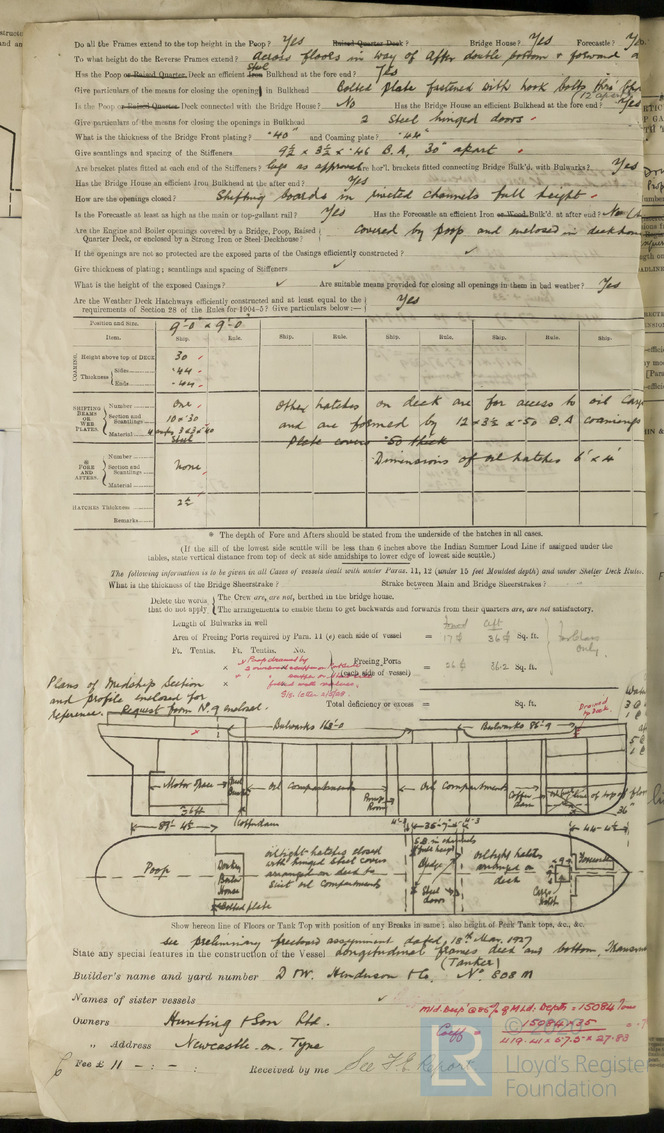 Do all the Frames extend to the top height in the Poop? Yes Raised Quarter Deck? Bridge House? Yes Forecastle? Yes
To what height do the Reverse Frames extend? Across floors in way of After double bottom & forward
Has the Poop or Raised Quarter Deck an efficient Iron Steel Bulkhead at the fore end? Yes
Give particulars of the means for closing the opening in Bulkhead Bolted plate fastened with hook bolts thro'
12" apart
Is the Poop or Raised Quarter Deck connected with the Bridge House? No Has the Bridge House an efficient Bulkhead at the fore end? Yes
Give particulars of the means for closing the openings in Bulkhead 2 Steel hinged doors
What is the thickness of the Bridge Front plating? .40" and Coaming plate? .44"
Give scantlings and spacing of the Stiffeners 9½ x 3½ x .46 B.A. 30" apart
Are bracket plates fitted at each end of the Stiffeners? Lugs as approved Are hor'l. brackets fitted connecting Bridge Bulk'd. with Bulwarks? Yes
Has the Bridge House an efficient Iron Bulkhead at the after end? Yes
How are the openings closed? Shifting boards in riveted channels full height
Is the Forecastle at least as high as the main or top-gallant rail? Yes Has the Forecastle an efficient Iron or Wood Bulk'd. at after end? No
Are the Engine and Boiler openings covered by a Bridge, Poop, Raised
Quarter Deck, or enclosed by a Strong Iron or Steel Deckhouse? Covered by poop and enclosed in deckhouse
If the openings are not so protected are the exposed parts of the Casings efficiently constructed? ✓
Give thickness of plating; scantlings and spacing of Stiffeners ✓
What is the height of the exposed Casings? ✓ Are suitable means provided for closing all openings in them in bad weather? Yes
Are the Weather Deck Hatchways efficiently constructed and at least equal to the
requirements of Section 28 of the Rules for 1904-5? Give particulars below:— Yes
Position and Size. 9'-0" x 9'-0"
Item. Ship. Rule. Ship. Rule. Ship. Rule. Ship. Rule.
COAMING. Height above top of DECK 30
Thickness Sides .44
Ends .44
SHIFTING BEAMS OR WEB PLATES. Number One Other hatches on deck are for access to oil Cargo
Section and Scantlings 10 x .30 and are formed by 12 x 3½ x .50 B.A coamings
Material Steel Plate covers .50 thick
Dimensions of oil hatches 6' x 4'
* FORE AND AFTERS. Number
Section and Scantlings None
Material
HATCHES Thickness 2½
Remarks
* The depth of Fore and Afters should be stated from the underside of the hatches in all cases.
(If the sill of the lowest side scuttle will be less than 6 inches above the Indian Summer Load Line if assigned under the
tables, state vertical distance from top of deck at side amidships to lower edge of lowest side scuttle.)
The following information is to be given in all Cases of vessels dealt with under Paras. 11, 12 (under 15 feet Moulded depth) and under Shelter Deck Rules.
What is the thickness of the Bridge Sheerstrake? Strake between Main and Bridge Sheerstrakes?
Delete the words that do not apply The Crew are, are not, berthed in the bridge house.
The arrangements to enable them to get backwards and forwards from their quarters are, are not satisfactory.
Length of Bulwarks in well Forwd Aft
Area of Freeing Ports required by Para. 11 (e) each side of vessel = 17 36 Sq. ft.
Ft. Tenths. Ft. Tenths. No.
Freeing Ports (each side of vessel) = 26 36.2 Sq. ft.
Total deficiency or excess = Sq. ft.
Plans of Midship Section
and profile enclosed for
reference. Request form No. 9 enclosed.
Drained by Deck
Bulwarks 163-0 Bulwarks 86-9
Motor Space Oil Compartments Pump Room Oil Compartments Coffer dam line of top of floors
Cofferdam 36"
89'-4½" 4-3 35-7½ 4-3 44-4½
Poop
Donkey Boiler House
Bolted plate
Oiltight hatches closed
with hinged steel covers
arranged on deck to
suit oil compartments
Bridge
Steel doors
Oiltight hatches
arranged on
deck
Cargo hatch
Forecastle
Show hereon line of Floors or Tank Top with position of any Breaks in same; also height of Peak Tank tops, &c., &c.
See preliminary freeboard assignment dated 18th May. 1927
State any special features in the construction of the Vessel Longitudinal frames deck and bottom,
(Tanker)
Builder's name and yard number D & W. Henderson & Co. No. 808 M
Names of sister vessels ✓
Mld. Disp. @ 85% of Mld. Depth = 15084 Tons
Coeff = 15084 x 35
419.41 x 57.5 x 27.83
Owners Hunting & Son Ltd.
„ Address Newcastle-on-Tyne
Fee £ 11 - : - : Received by me See F.E. Report
© 2020
LR
Lloyd's Register
Foundation